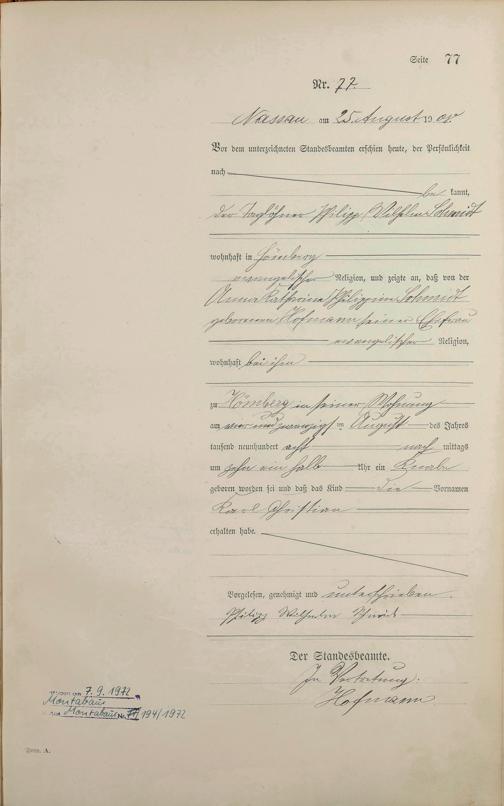 Seite 77
Nr. 77.
Nassau am 25. August 1908.
Vor dem unterzeichneten Standesbeamten erschien heute, der Persönlichkeit
nach
be kannt,
der Taglöhner Philipp Wilhelm Schmidt
wohnhaft in Hömberg
evangelischer Religion, und zeigte an, daß von der
Anna Katharina Philippine Schmidt
geborenen Hofmann seiner Ehefrau
evangelischer Religion,
wohnhaft bei ihm
zu Hömberg in seiner Wohnung
am vier und zwanzigsten August des Jahres
tausend neunhundert acht nach mittags
um zehn ein halb Uhr ein Knabe
geboren worden sei und daß das Kind die Vornamen
Karl Christian
erhalten habe.
Vorgelesen, genehmigt und unterschrieben.
Philipp Wilhelm Schmidt
Der Standesbeamte.
In Vertretung.
Hofmann
7.9.1972
Montabaur
Montabaur Nr. 194/1972
Form. A.